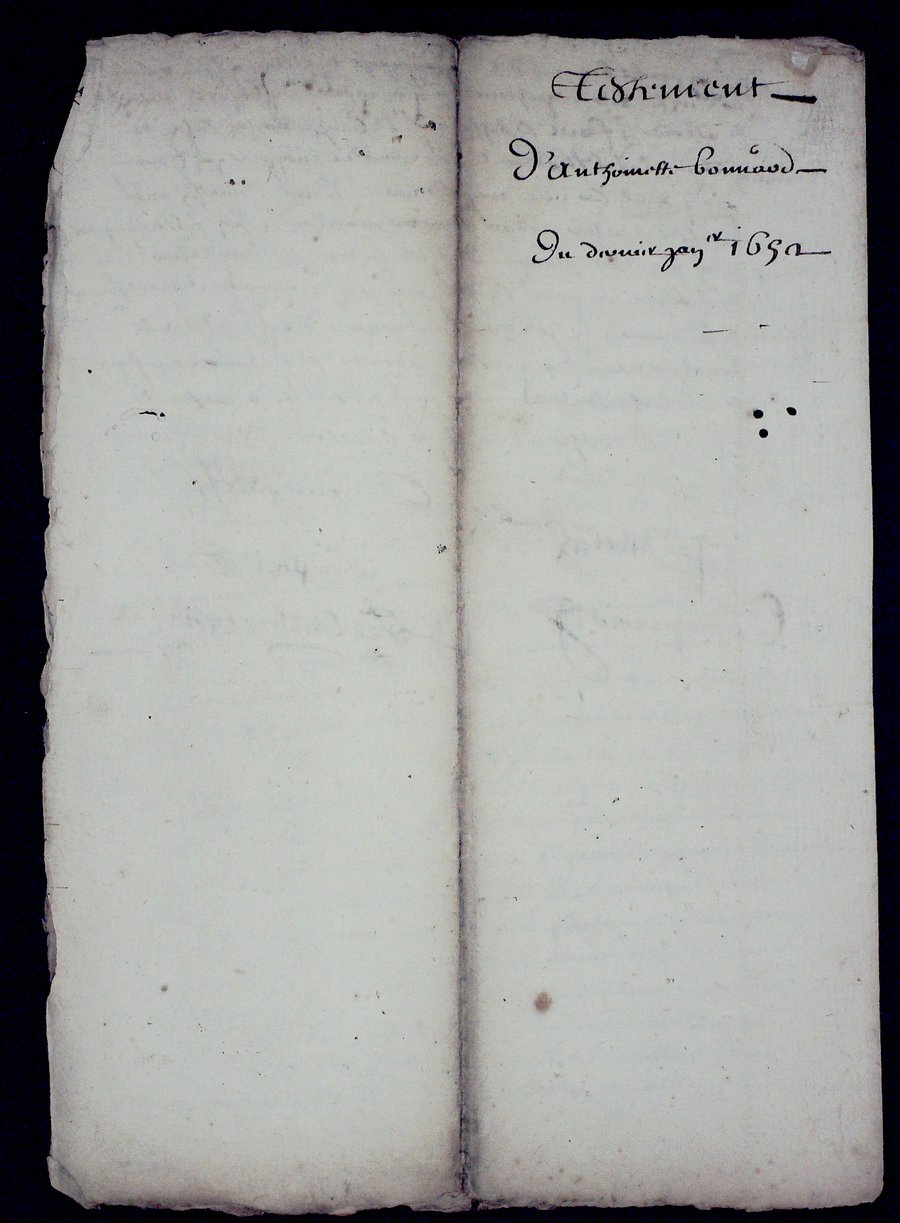 Testement
D'Anthoinette bonnard
Du dernier janer 1652